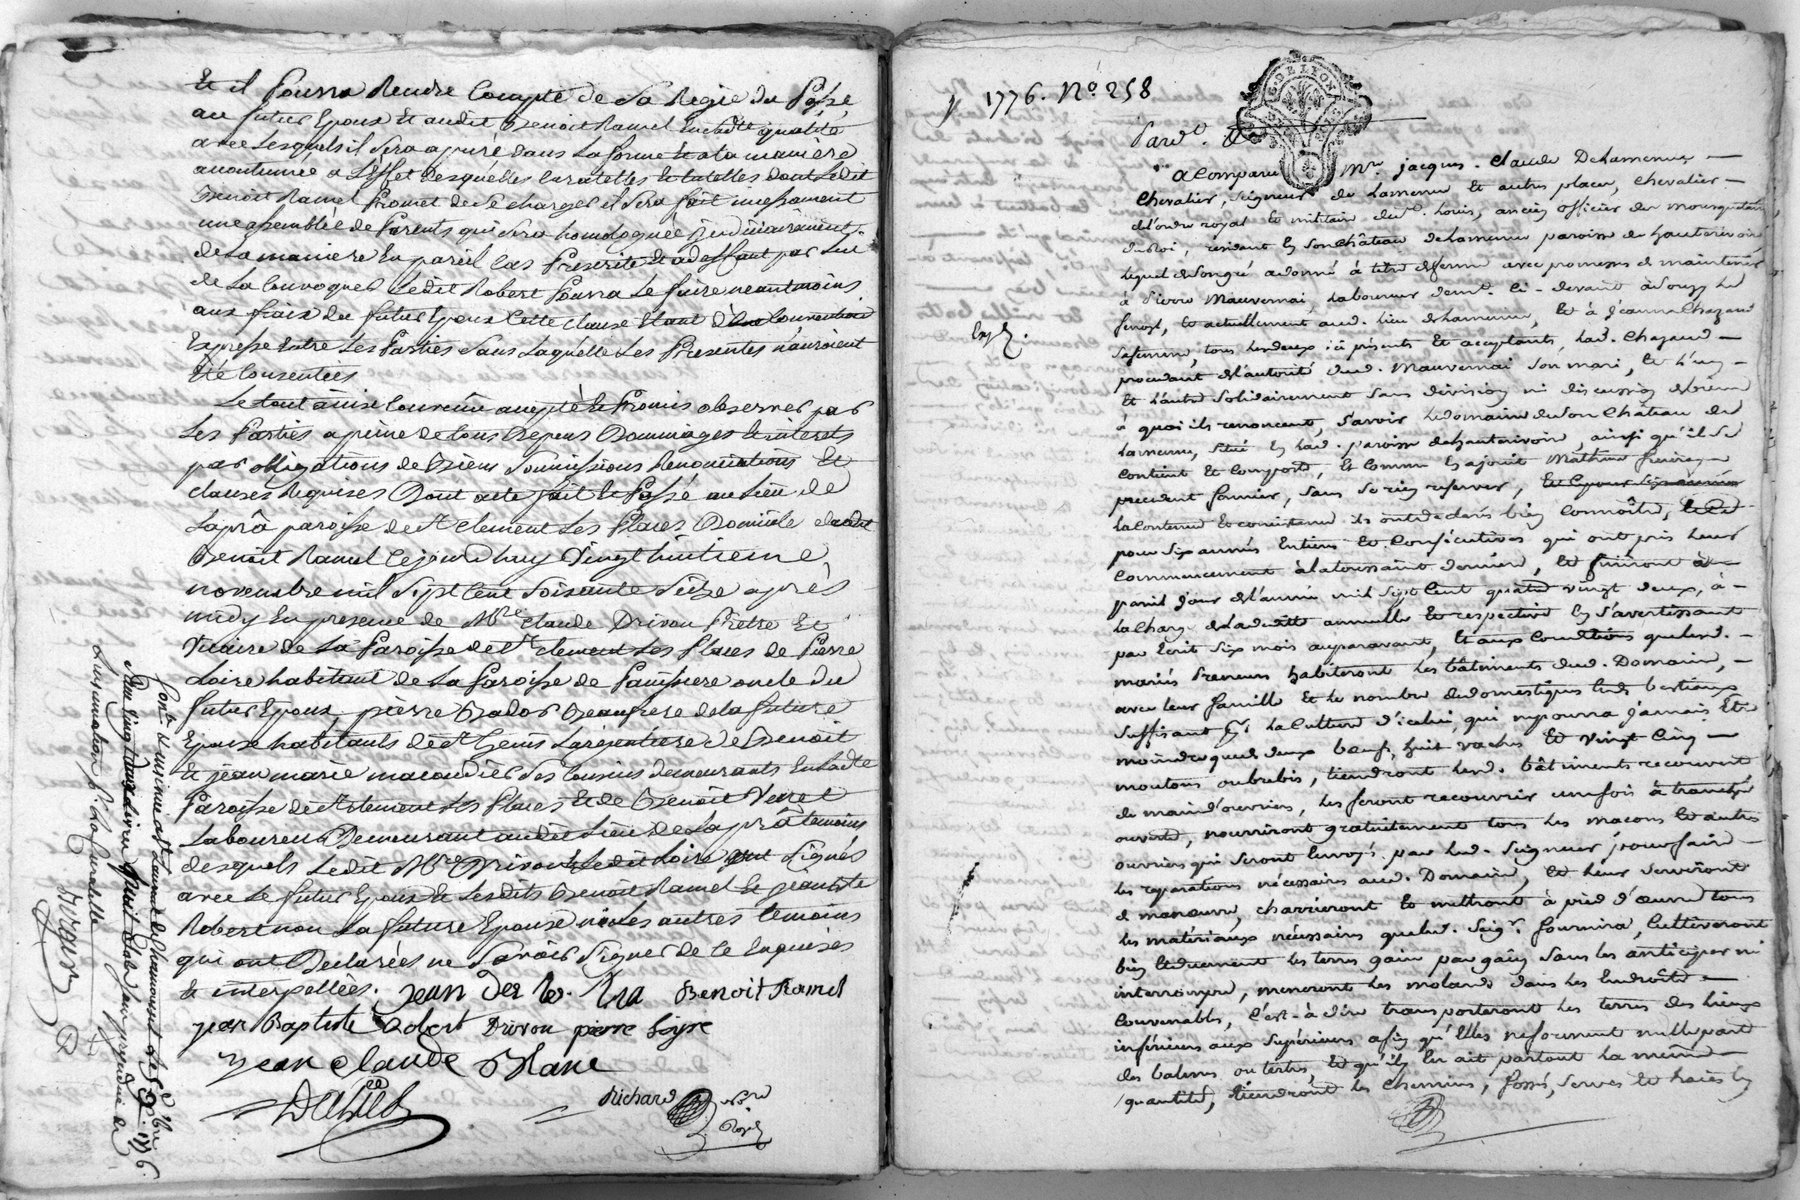 Et il Pourra Rendre Compte de Sa Regie du Passé
au futur Epoux Et audit Benoit Ramel En ladte qualité
avec lesquels il Sera apuré dans la forme Et a la maniere
accoutumée a L'Effet desquelles Curatelles Et tutelles dont Ledit
Benoit Ramel Promet de Se charger il Sera fait incessament
une assemblée de Parents qui Sera homologuée Judiciairement
de la maniere En pareil Cas Prescrite Et a deffaut par lui
de La Convoquer Ledit Robert Pourra Le faire neantmoins
aux fraix du futur Epoux Cette clause Etant de Convention
Expresse Entre Les Parties Sans Laquelle Les Presentes n'auroient
Eté Consenties
Le tout ainsi Convenu accepté Et Promis observer par
Les Parties a peine de tous Depens Dommages Et interets
par obligations de Biens Soumissions Renonciations Et
clauses Requises Dont acte fait Et Passé au Lieu de
Laprâ paroisse de St Clement Les Places Domicile dudit
Benoit Ramel Cejourdhuy Vingt huitieme
novembre mil Sept Cent Soixante Seize après
midy En presence de Mre Claude Drivon Prêtre Et
Vicaire de La Paroisse de St Clement Les Places de Pierre
Loire habitant de La Paroisse de Panissiere oncle du
futur Epoux, pierre Beaufrere de la future
Epouse habitants de St Genis Largentiere de Benoit
Et jean marie macaudier Ses Cousins demeurants En ladte
Paroisse de St Clement Les Places Et de Benoit
Laboureur Demeurant audit Lieu de Laprâ temoins
desquels Ledit Mre Drivon Et Ledit Loire ont Signés
avec Le futur Epoux Et Lesdits Benoit Ramel Et jean Bte
Robert non La future Epouse ni Les autres temoins
qui ont Declarées ne Savoir Signer de Ce Enquises
Et interpellées. jean Benoit Ramel
jean Baptiste Robert Drivon pierre
jean Claude Blanc
Richard
nore
Royal
Contlé Et insinué a St Laurent de Chamousset Le 9 Xbre 1776
l'insinuation
1776. No 258
Pardt.
a Comparu Mre jacques - claude Delamenue
Chevalier, Seigneur de Lamenue Et autres places, Chevalier
de l'ordre royal Et militaire de St. Louis, ancien officier des mousquetaires
du Roi, residant En Son Château de Lamenue paroisse de hauterivoire
Lequel de Son gré a donné à titre de ferme avec promesses de maintenir
à Pierre Mauvernai, Laboureur demt. Ci-devant à
Et actuellement aud. lieu de Lamenue, Et à Jeanne Chazaud
Sa femme, tous Les deux ici présents Et acceptants, lad. Chazaud
procedant de l'autorité dud. Mauvernai Son mari, Et l'un
Et l'autre Solidairement Sans division ni discussion de biens
à quoi ils renoncent, Savoir Le domaine de Son Château de
Lamenue, Situé En lad. paroisse de hauterivoire, ainsi qu'il Se
Contient Et Comporte, Et Comme En a joui Mathieu
precedent fermier, Sans Se rien reserver,
La Contenue Et Consistence ils ont declaré bien Connoître,
pour Six années Entieres Et Consécutives qui ont pris leur
Commencement à la toussaint derniere, Et finiront à
pareil Jour de l'année mil Sept Cent quatre vingt deux, à
La Charge de La dedite annuelle Et respective En S'avertissant
par Ecrit Six mois auparavant, Et aux Conditions que Lesd.
mariés Preneurs habiteront les bâtiments dud. Domaine,
avec leur famille Et le nombre de domestiques Et de bestiaux
Suffisant pr. La Culture d'icelui, qui ne pourra Jamais Etre
moindre que de deux boeufs, huit vaches Et vingt Cinq
moutons ou brebis, tiendront Lesd. bâtiments recouverts
de main d'ouvriers, les feront recouvrir une fois à tranche
ouverte, nourriront gratuitement tous les macons Et autres
ouvriers qui Seront Envoyés par led. Seigneur pour faire
les reparations nécessaires aud. Domaine, Et leur Serviront
de manoeuvre, charrieront Et mettront à pied d'oeuvre tous
les matériaux nécessaires que led. Seigr. fournira, Cultiveront
bien Et duement les terres gain par gain Sans les anticiper ni
interrompre, meneront les molards dans les Endroits
Convenables, C'est-à-dire transporteront les terres des lieux
inférieurs aux Supérieurs afin qu'Elles ne forment nulle part
des balmes ou tertres, Et qu'il En ait partout la même
quantité, tiendront les Chemins, fossés, Serves Et haies En